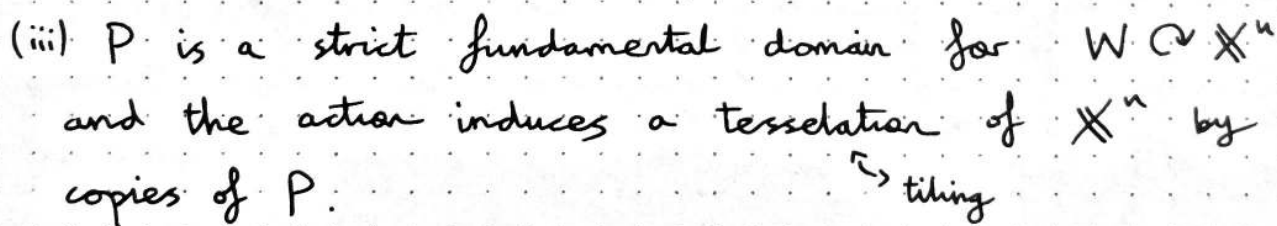 (iii) P is a strict fundamental domain for W ↷ 𝕏ⁿ
and the action induces a tesselation of 𝕏ⁿ by
copies of P.
↔ tiling